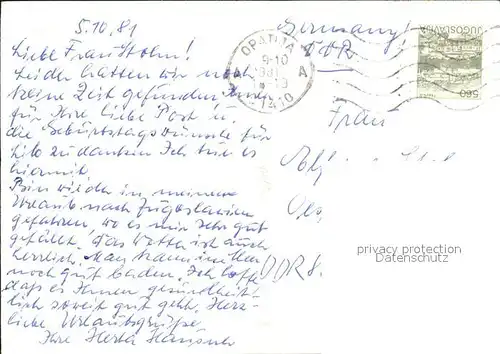 5.10.81
Liebe Frau Stohn!
Leider hatten wir noch
keine Zeit gefunden Ihnen
für Ihre liebe Post u.
die Geburtstagswünsche für
zu danken. Ich tue es
hiermit.
Bin wieder in meinem
Urlaub nach Jugoslawien
gefahren, wo es mir sehr gut
gefällt. Das Wetter ist auch
herrlich. Man kann im Meer
noch gut baden. Ich hoffe
daß es Ihnen gesundheit-
lich soweit gut geht. Herz-
liche Urlaubsgrüße
Ihre Herta
Germany!
DDR
OPATIJA
9-10
A
1410
JUGOSLAVIJA
560
Frau
DDR 8.
privacy protection
Datenschutz